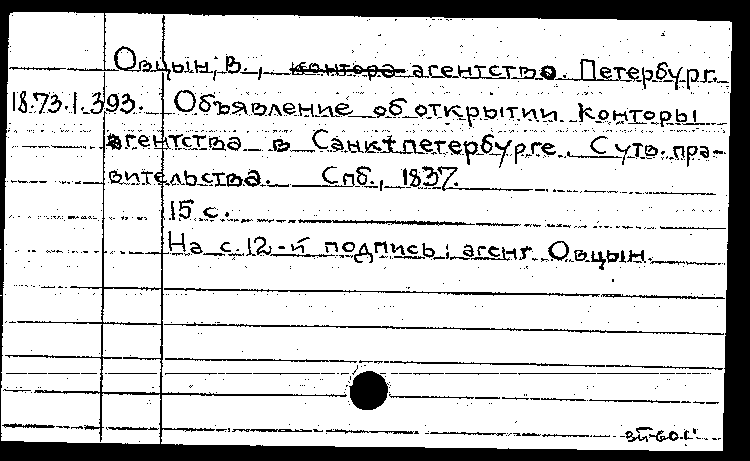 Овцын, В., контора агентство. Петербург.
18.73.1.393. Объявление об открытии конторы
агентства в Санктпетербурге. С утв. пра-
вительства. Спб., 1837.
15 с.
На с. 12-й подпись: агент Овцын.